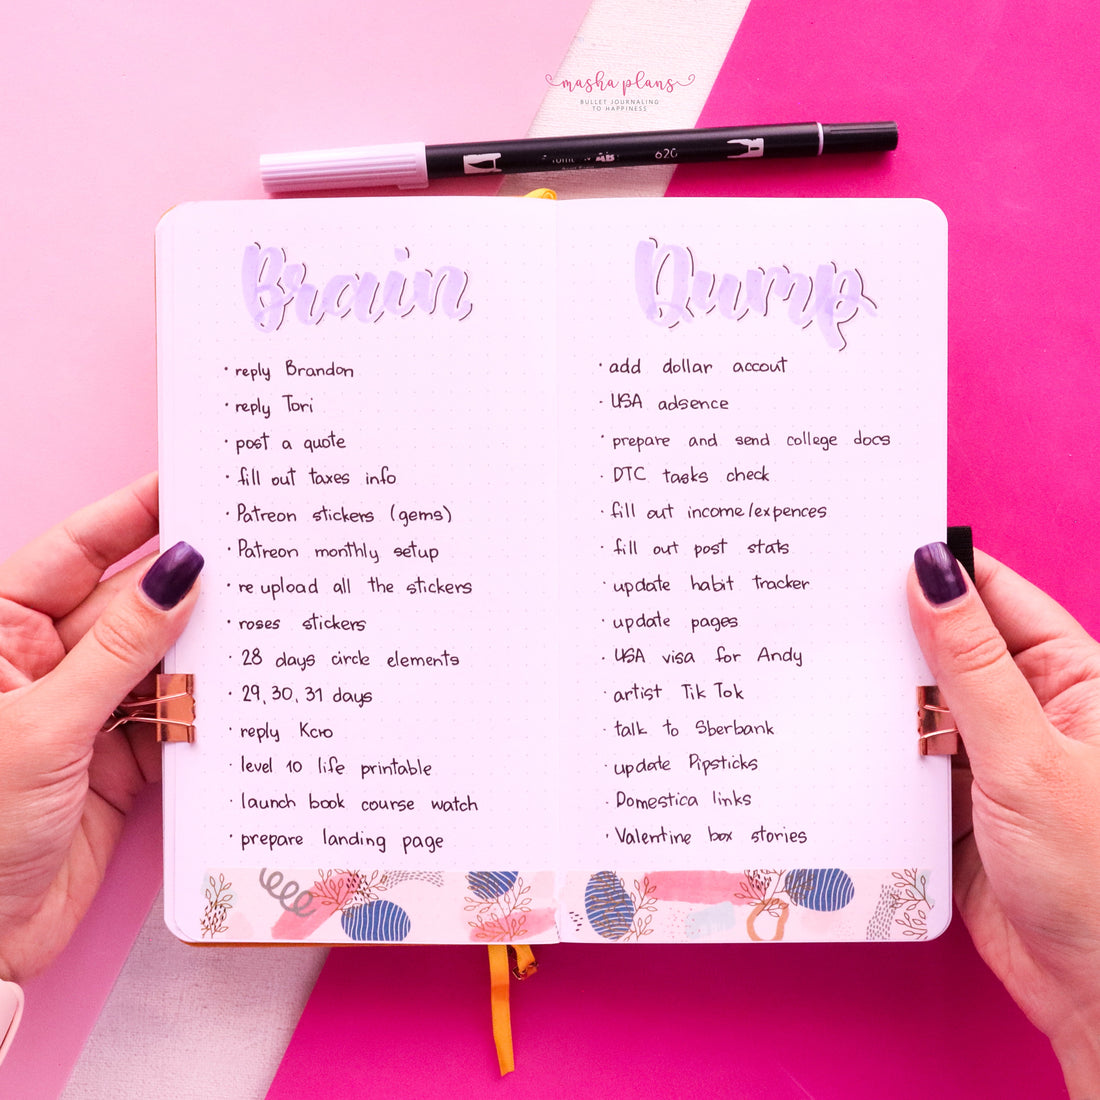 masha plans
BULLET JOURNALING
TO HAPPINESS
620
Brain
• reply Brandon
• reply Tori
• post a quote
• fill out taxes info
• Patreon stickers (gems)
• Patreon monthly setup
• re upload all the stickers
• roses stickers
• 28 days circle elements
• 29, 30, 31 days
• reply Kcro
• level 10 life printable
• launch book course watch
• prepare landing page
Dump
• add dollar accout
• USA adsence
• prepare and send college docs
• DTC tasks check
• fill out income/expences
• fill out post stats
• update habit tracker
• update pages
• USA visa for Andy
• artist Tik Tok
• talk to Sberbank
• update Pipsticks
• Domestica links
• Valentine box stories